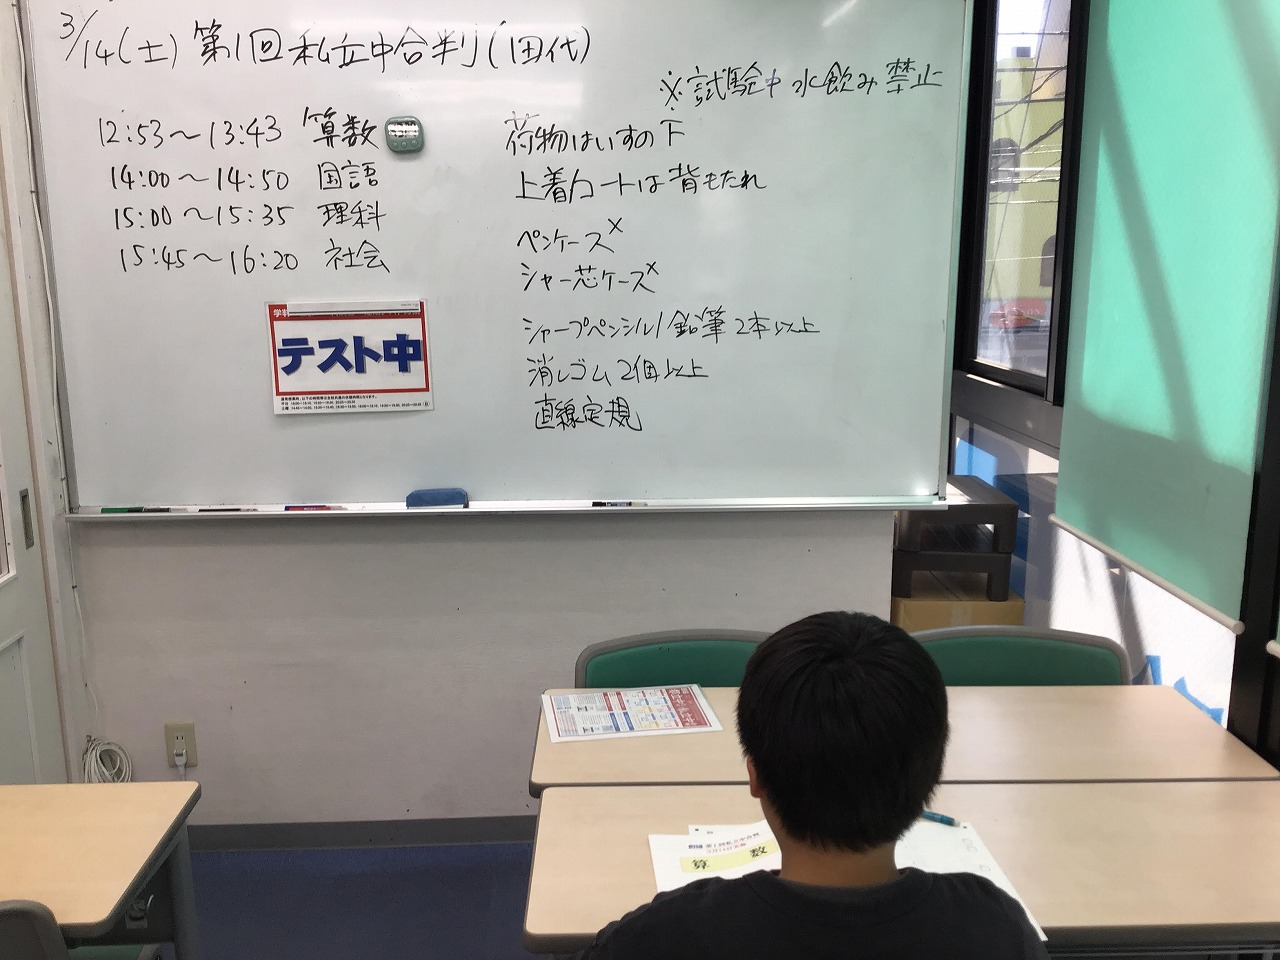 3/14(土) 第1回 私立中合判(田代)
※試験中 水飲み禁止
12:53～13:43 算数
14:00～14:50 国語
15:00～15:35 理科
15:45～16:20 社会
荷物はいすの下
上着コートは背もたれ
ペンケース×
シャー芯ケース×
シャープペンシル/鉛筆 2本以上
消しゴム 2個以上
直線定規
テスト中
算 数